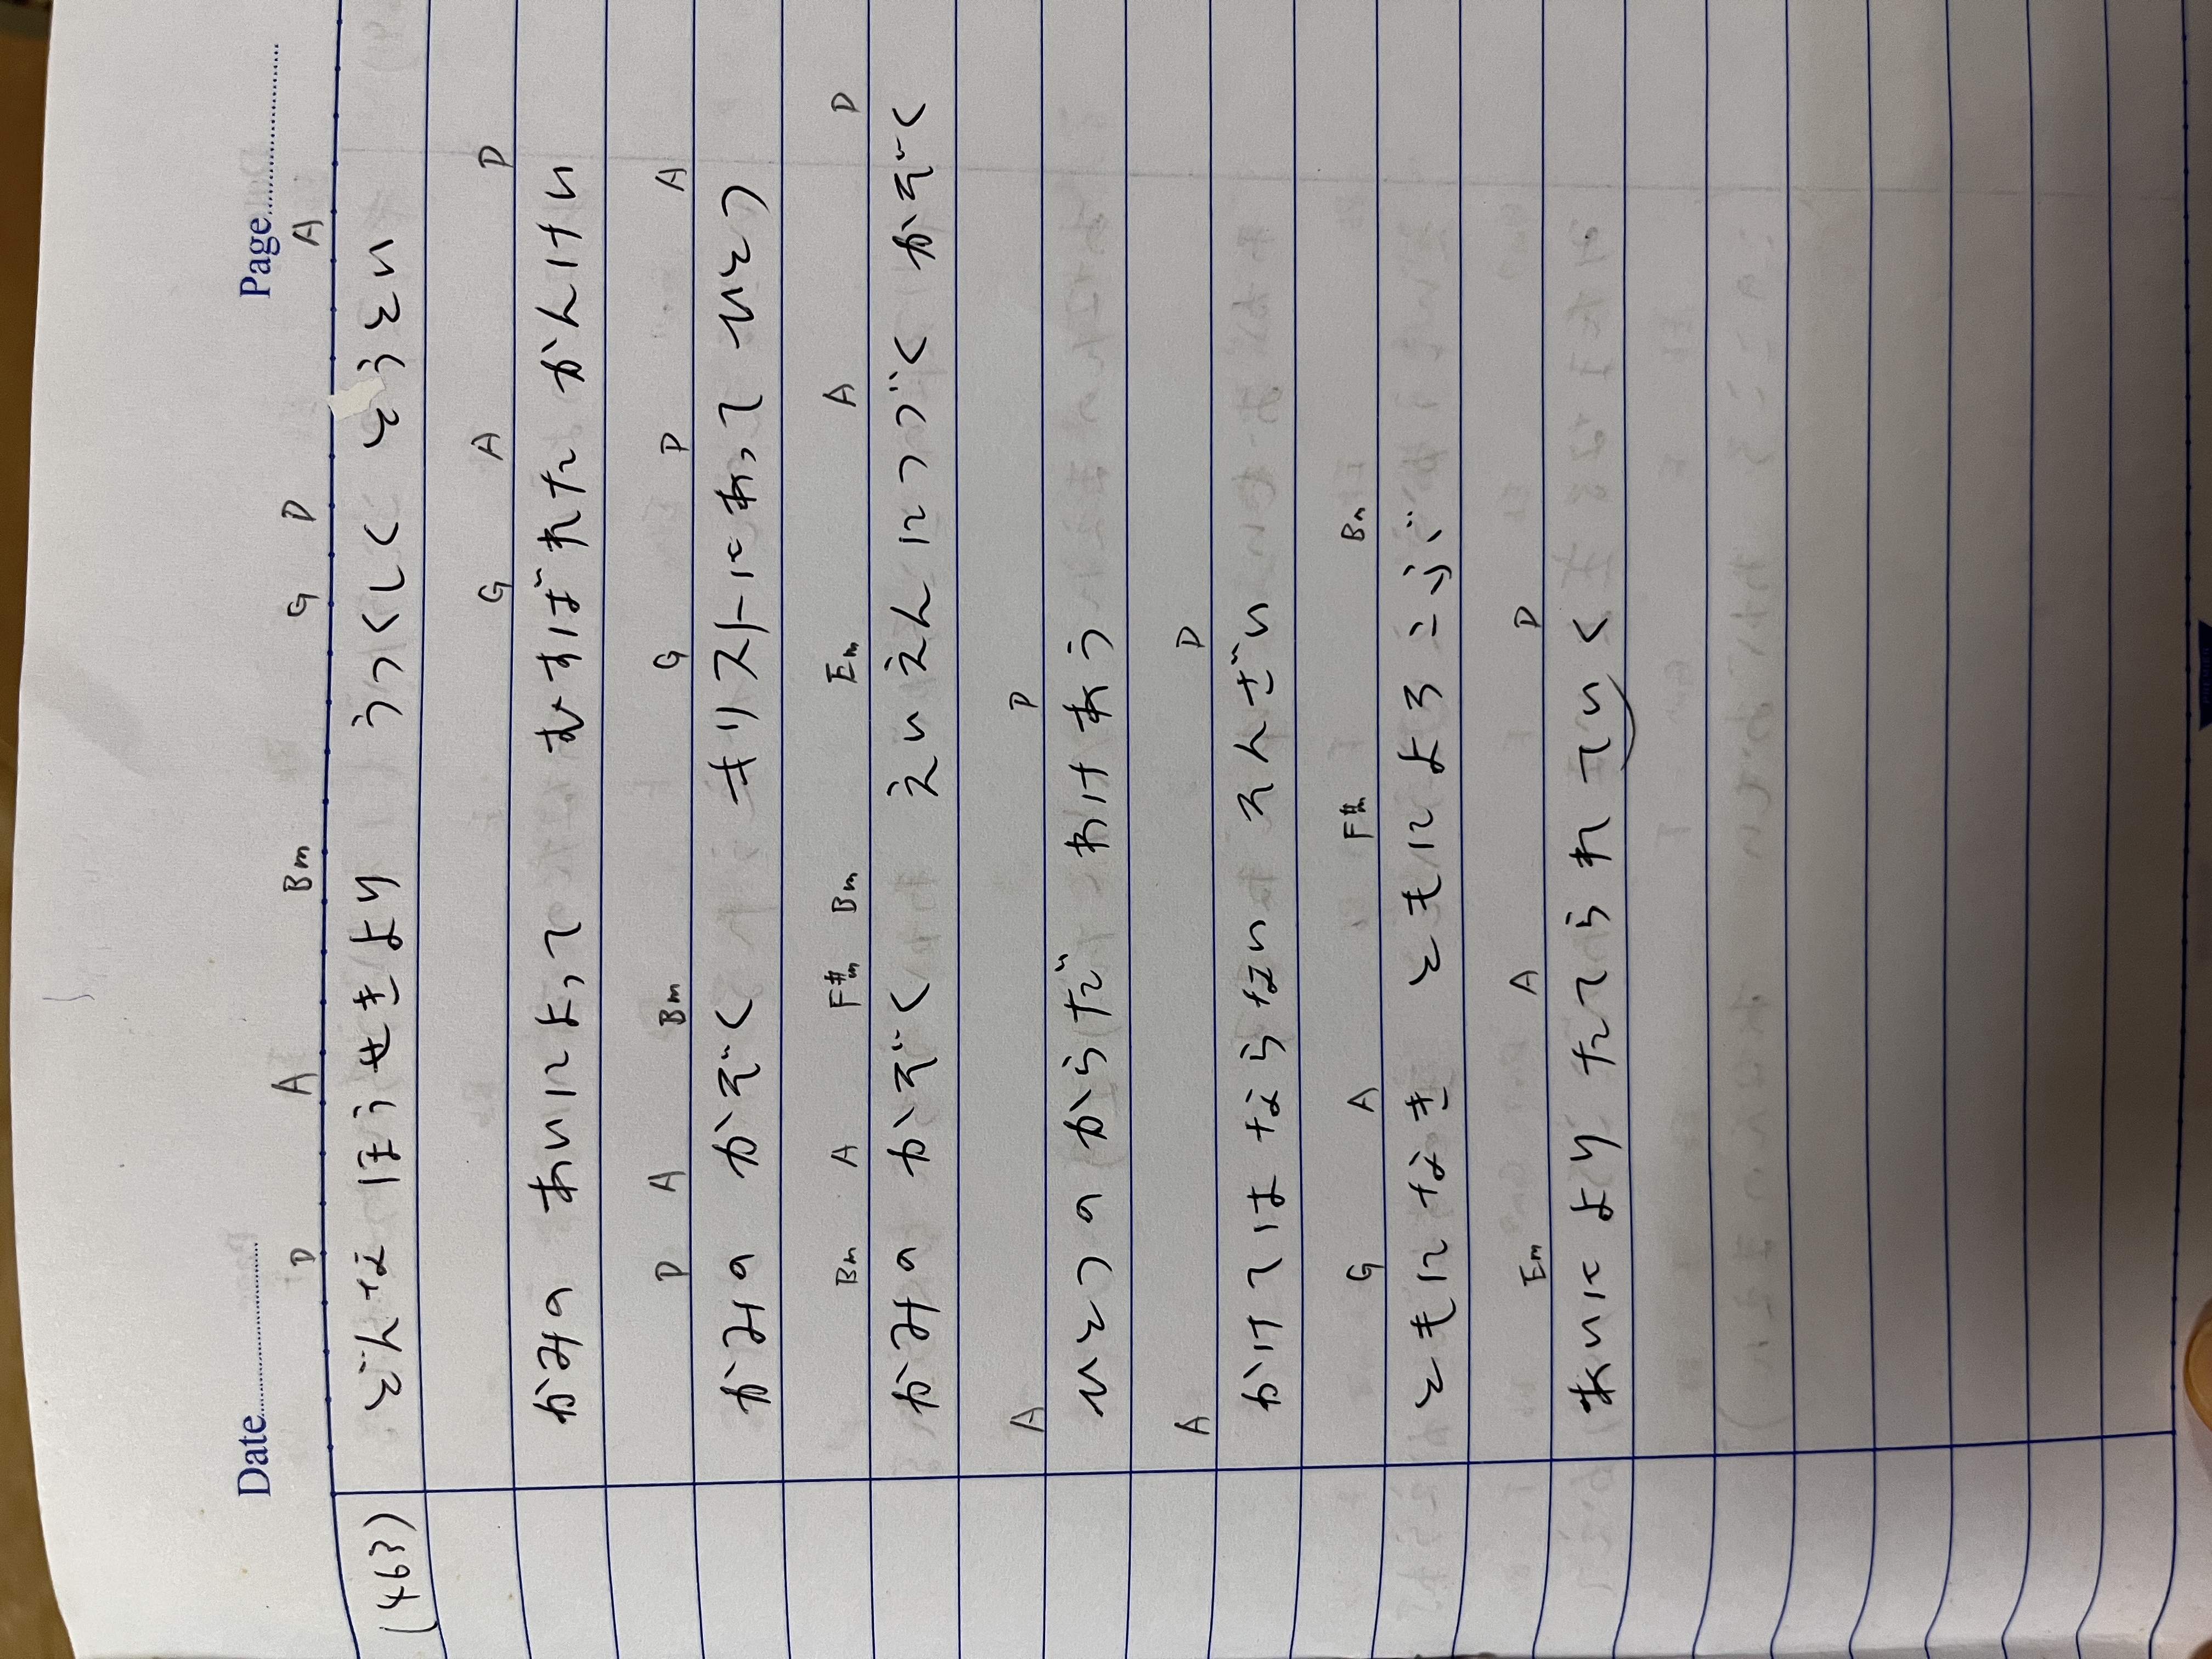 Date Page
D A Bm G D A
(463) どんな ほうせきより うつくしく とうとい
G A D
かみの あいによって むすばれた かんけい
D A Bm G D A
かみの かぞく キリストにあって ひとつ
Bm A F#m Bm Em A D
かみの かぞく えいえんにつづく かぞく
A D
ひとつの からだ わけあう
A D
かけては ならない そんざい
G A F#m Bm
ともに なき ともに よろこぶ
Em A D
あいに より たてられ ていく